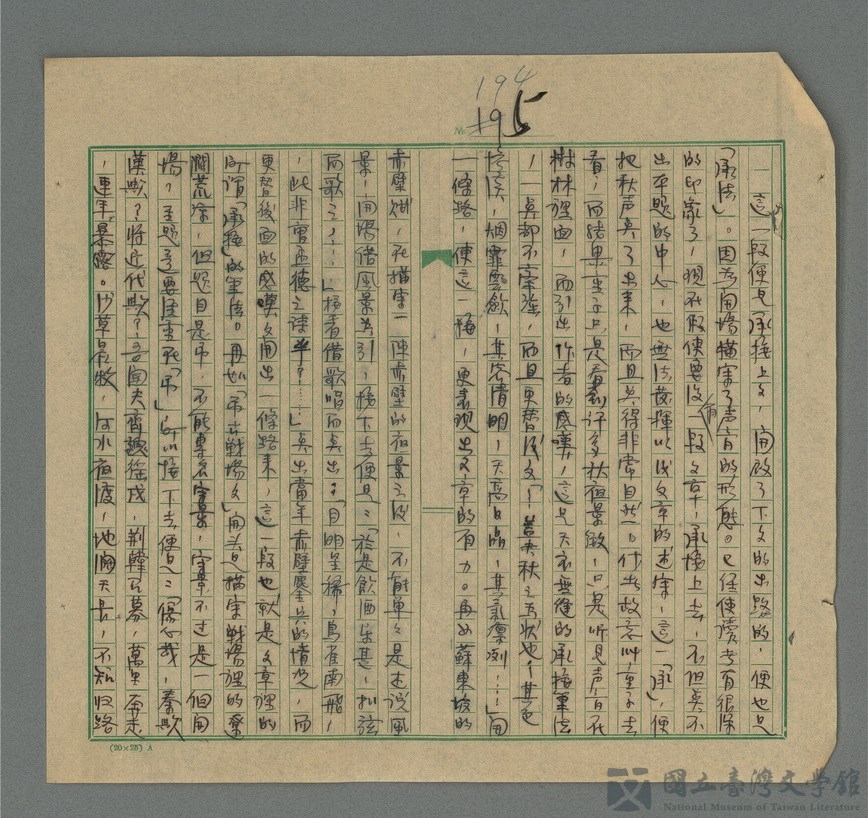 194
195
No.
這一段便是承接上文,開啟了下文的出路的,便也是
「承法」。因為開場描寫了声音的形態。已經使讀者有很深
的印象了,現在假使要沒有段文章,承接上去,不但点不
出本題的中心,也無法發揮以後文章的述寫,這一「承」,便
把秋声点了出來,而且点得非常自然。什麼故意叫童子去
看,而結果童子只是看到許多秋夜景緻,只是听見声音在
樹林裡面,而引出作者的感嘆,這是天衣無縫的承接筆法
,一点都不牽強,而且更替後文「蓋夫秋之為狀也,其色
慘淡,烟霏雲斂,其容清明,天高日晶,其氣凜冽……」開
一條路,使這一接,更表現出文章的有力。再如蘇東坡的
赤壁賦,在描寫一陣赤壁的夜景之後,不能單々是述說風
景,開場借風景為引,接下去便是:「於是飲酒樂甚,扣弦
而歌之……」接着借歌唱而点出:「月明星稀,烏雀南飛,
,此非曹孟德之詩乎?……」点出當年赤壁鏖兵的情況,而
更替後面的感嘆文開出一條路來,這一段也就是文章裡的
所謂「承接」的筆法。再如「吊古戰場文」開头是描寫戰場裡的遼
濶荒涼,但題目是吊,不能專是寫景,寫景不过是一個開
場,主題是要注重在「吊」,所以接下去便是:「傷心哉,秦歟
漢歟?將近代歟?吾聞夫齊魏徭戍,荆韓召募,萬里奔走
,連年暴露。沙草晨牧,河水夜渡,地濶天長,不知归路
(20×25) A
國立臺灣文學館
National Museum of Taiwan Literature